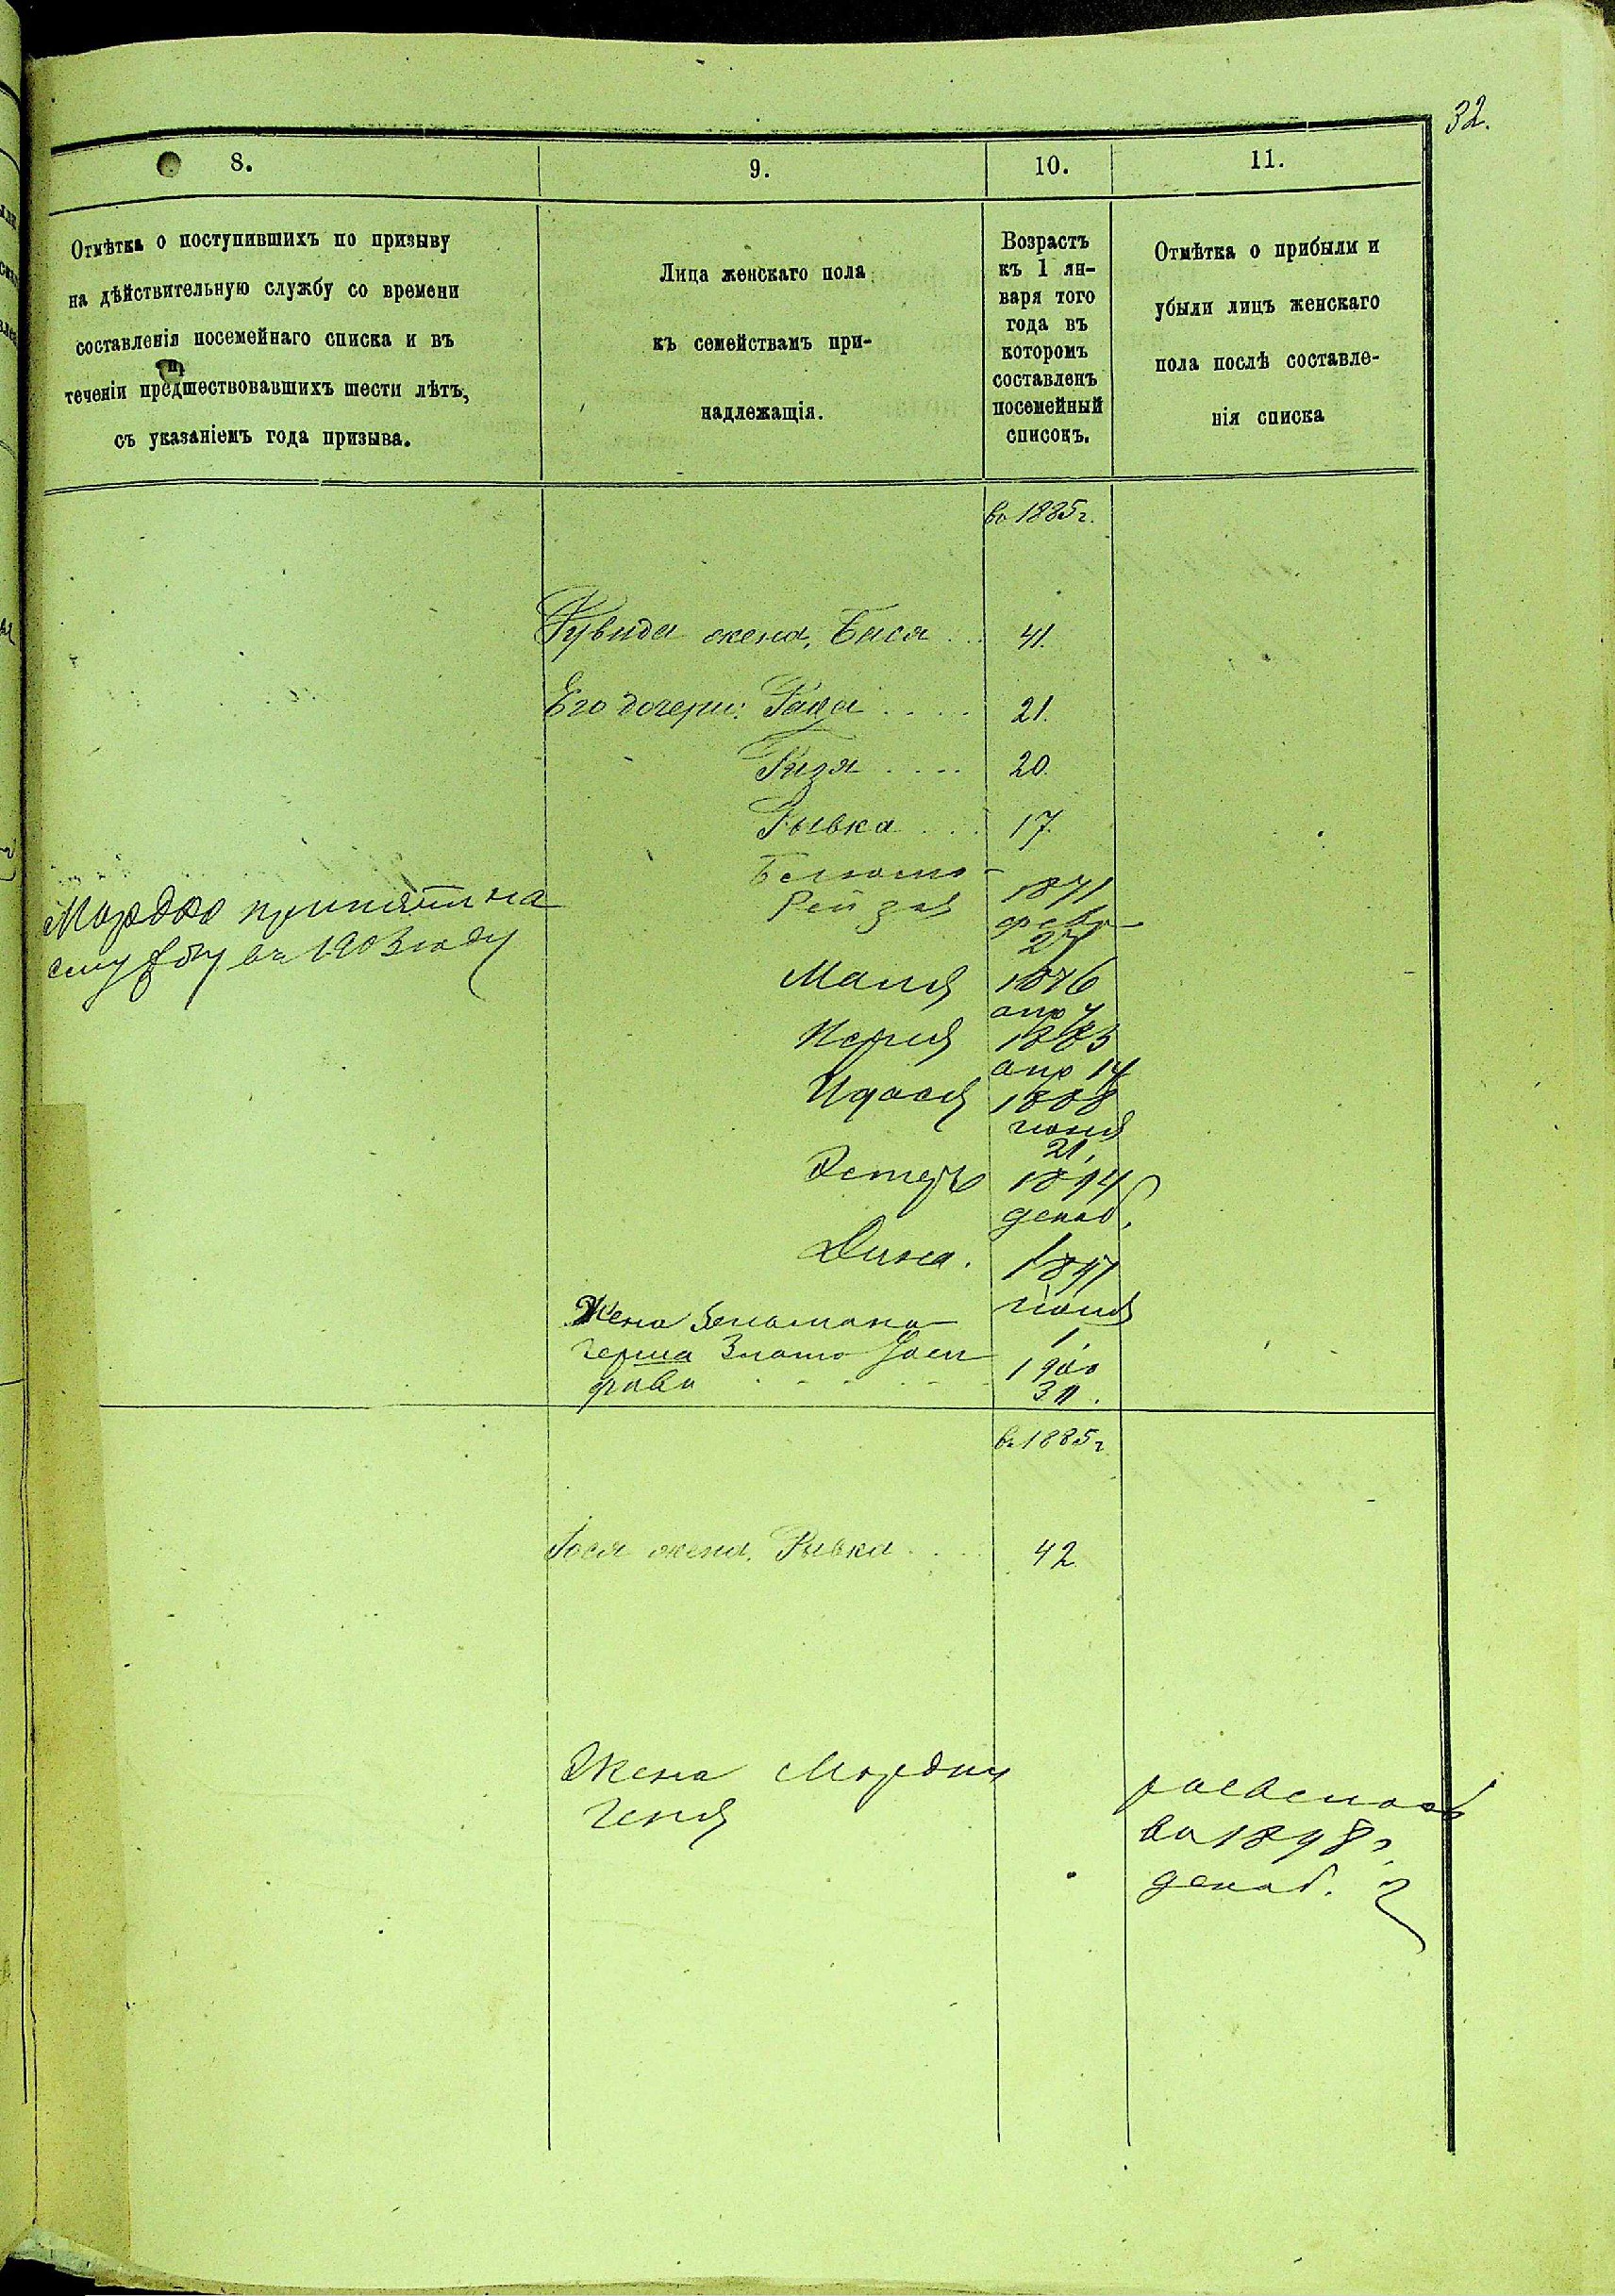 32.
8.
9.
10.
11.
Отмѣтка о поступившихъ по призыву
на дѣйствительную службу со времени
составленія посемейнаго списка и въ
теченіи предшествовавшихъ шести лѣтъ,
съ указаніемъ года призыва.
Лица женскаго пола
къ семействамъ при-
надлежащія.
Возрастъ
къ 1 ян-
варя того
года въ
которомъ
составленъ
посемейный
списокъ.
Отмѣтка о прибыли и
убыли лицъ женскаго
пола послѣ составле-
нія списка
въ 1885 г.
жена, Бася . . 41.
Его дочери: . . . . 21.
. . . . 20.
Рывка . . . 17.
Мордко принятъ на
службу въ 1903 году
Рейзя
1871
февр
27
Маня 1876
апр
1883
апр 14
1888
іюня
21,
Эстеръ 1894
декаб.
Дина. 1897
іюня
1,
Жена
Герша Злата
1900
31.
въ 1885 г
жена, Рывка . . . 42.
Жена Мордки
Геня
въ 1898 г.
декаб. 2